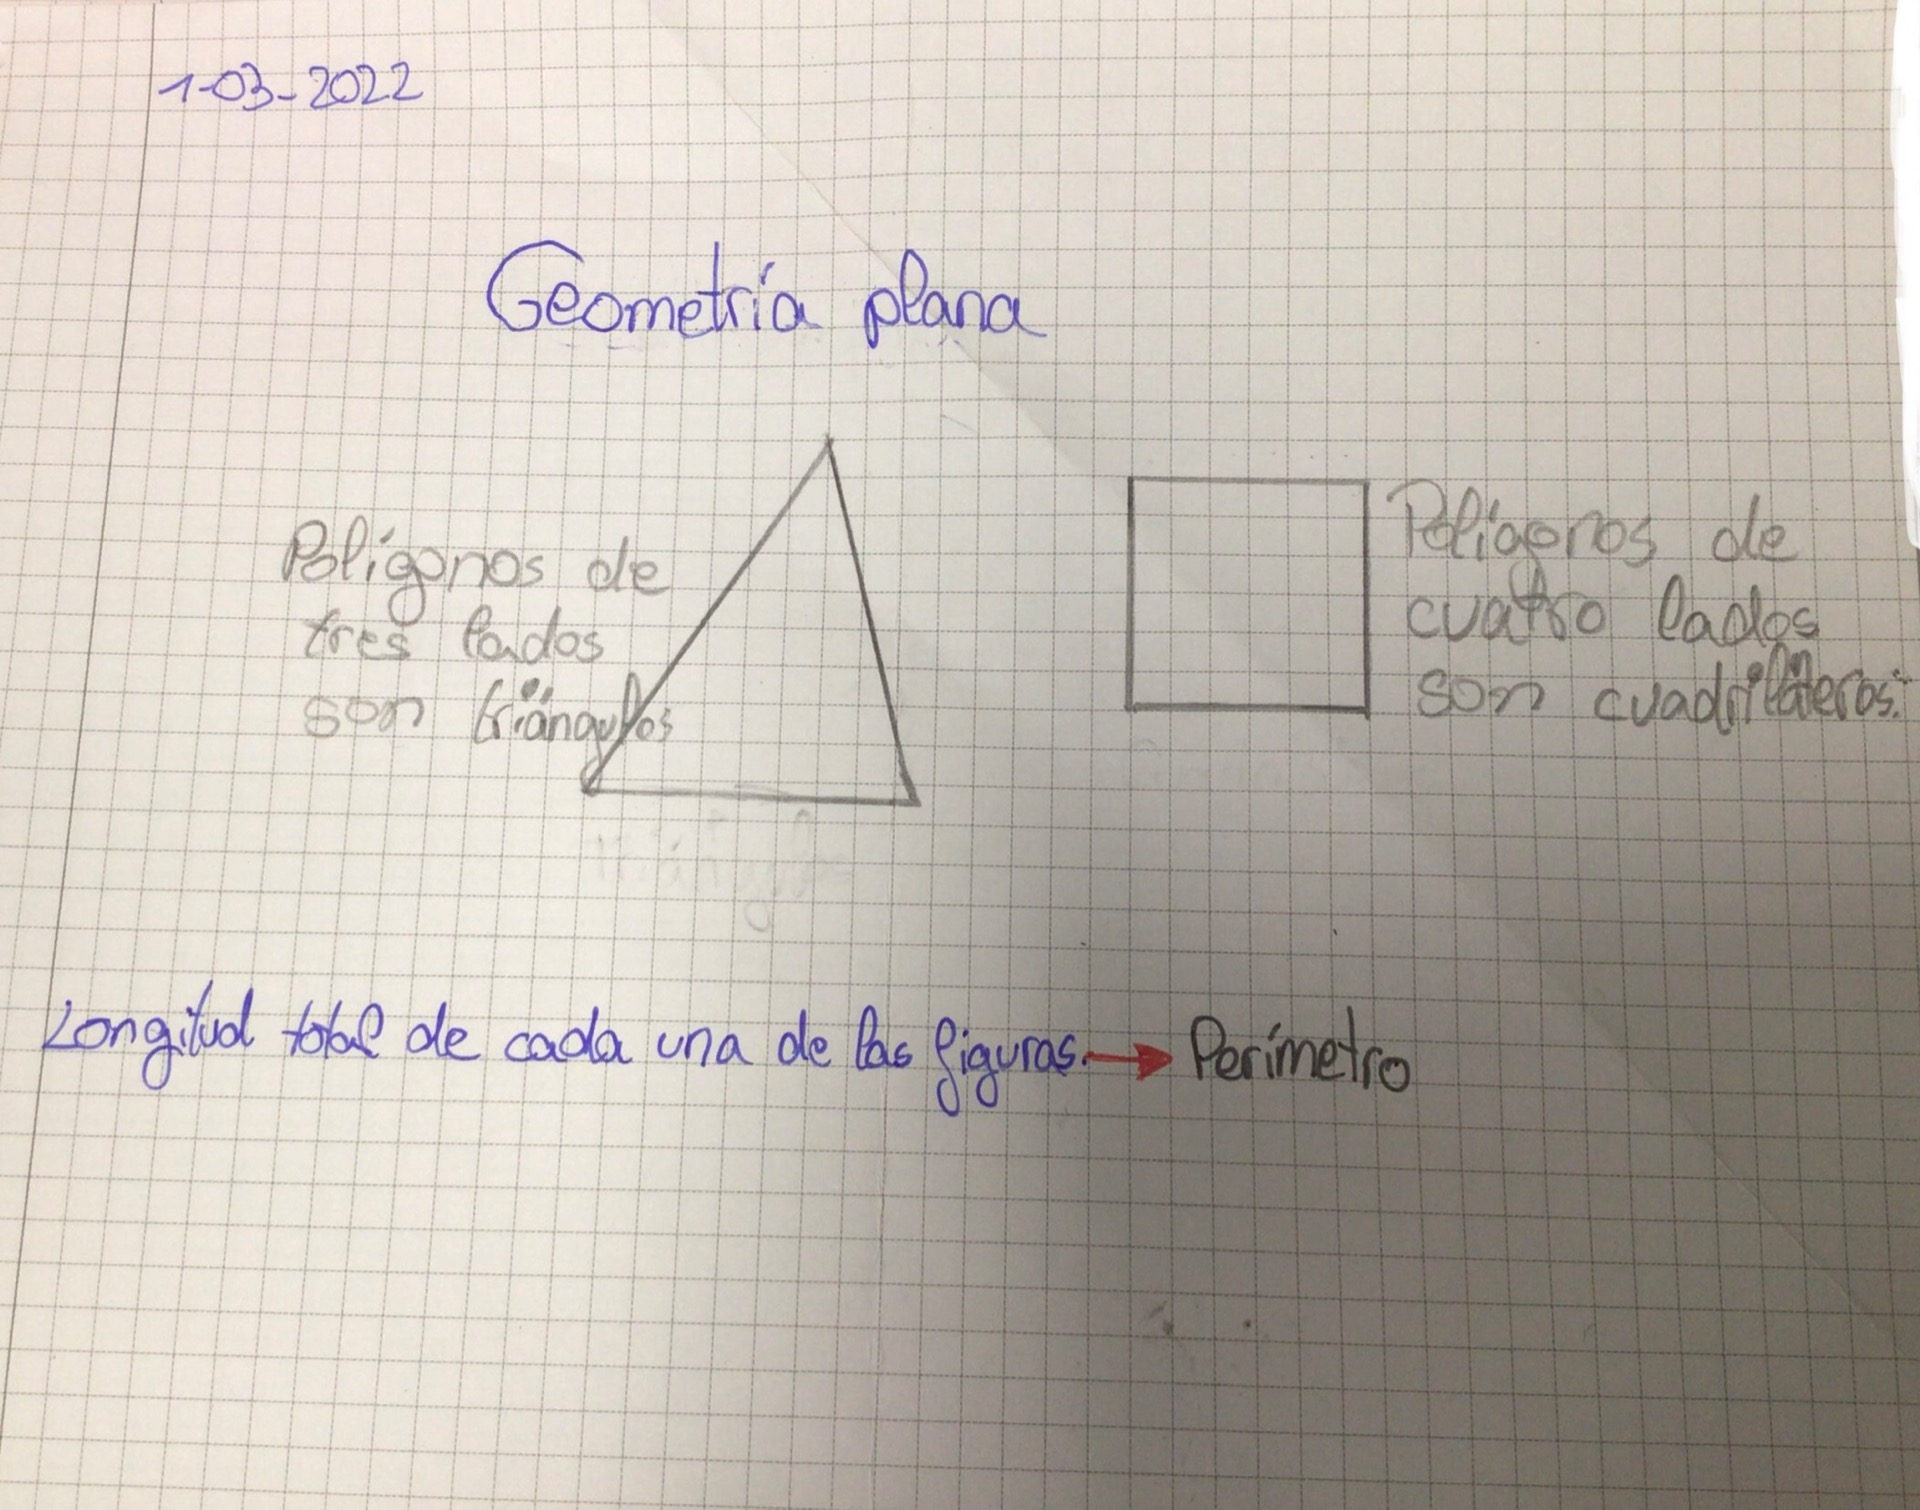 1-03-2022
Geometría plana
Polígonos de
tres lados
son triángulos
Polígonos de
cuatro lados
son cuadriláteros.
Longitud total de cada una de las figuras. → Perímetro